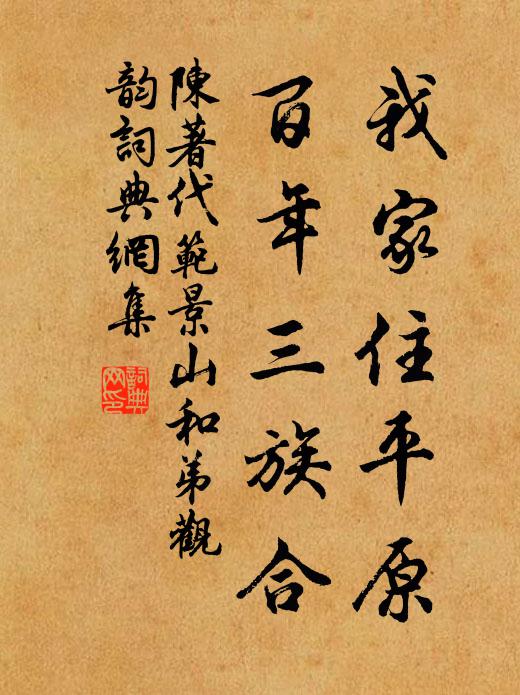 我家住平原
百年三族合
陳著代範景山和弟觀
韵詞典網集
詞典
网印